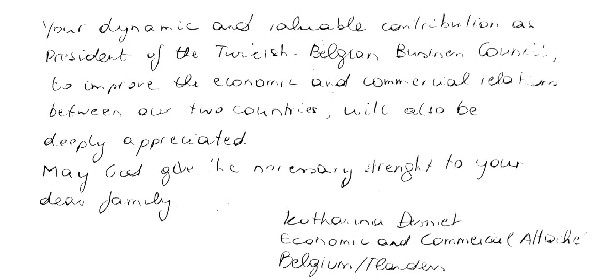 Your dynamic and valuable contribution as
President of the Turkish-Belgian Business Council,
to improve the economic and commercial relations
between our two countries, will also be
deeply appreciated.
May God give the necessary strenght to your
dear family
Economic and Commercial Attaché
Belgium/Flanders